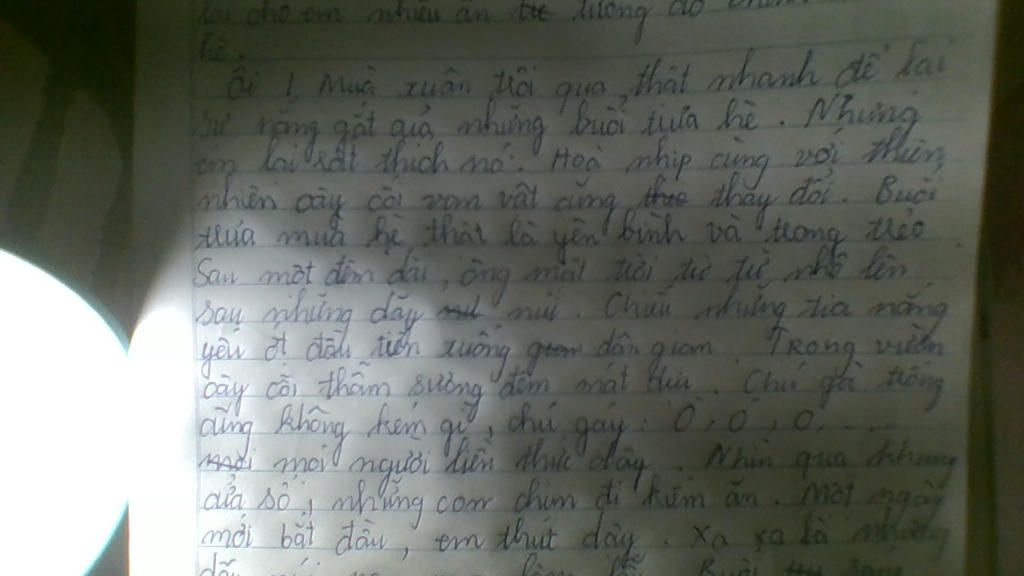 lại cho em nhiều ấn tư tượng đó
hè.
Ôi ! Muà xuân trôi qua thật nhanh để lại
sự nắng gắt quả những buổi trưa hè. Nhưng
em lại rất thích nó. Hoà nhịp cùng với thiên
nhiên cây cối vạn vật cũng theo thay đổi. Buổi
trưa muà hè thật là yên bình và trong trẻo
Sau một đêm dài, ông mặt trời từ từ nhô lên
sau những dãy nui núi. Chiếu những tia nắng
yếu ớt đầu tiên xuống gian dân gian. Trong vườn
cây cối thẫm sương đêm mát dịu. Chú gà trống
cũng không kém gì, chú gáy: Ò, Ó, O, ....
mọi mọi người liền thức dậy. Nhìn qua khung
cửa sổ, những con chim đi kiếm ăn. Một ngày
mới bắt đầu, em thức dậy. Xa xa là những
dãy núi